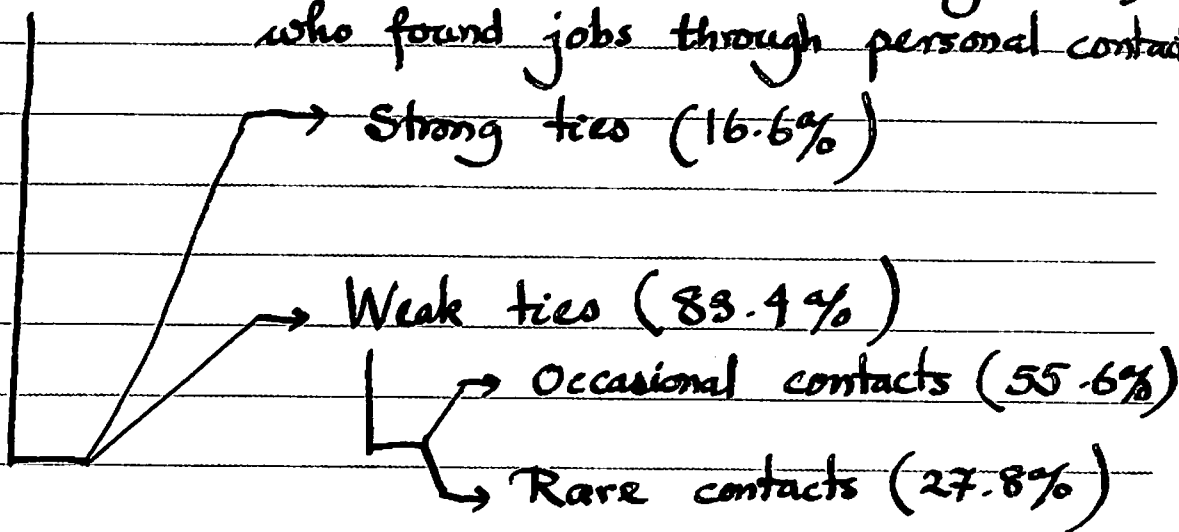 who found jobs through personal contac
Strong ties (16.6%)
Weak ties (83.4%)
Occasional contacts (55.6%)
Rare contacts (27.8%)